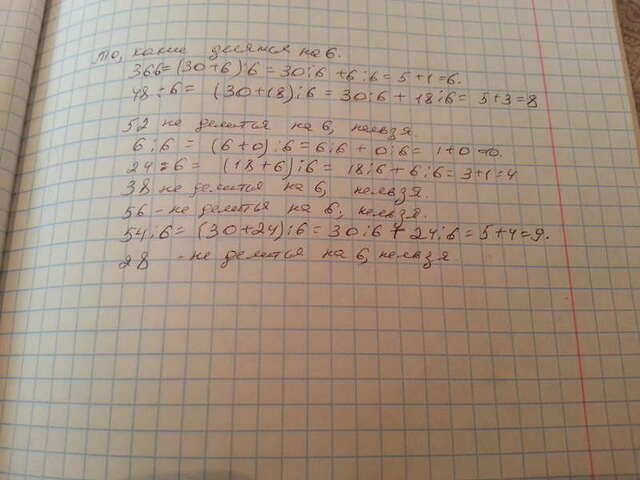 то, какие делятся на 6.
366=(30+6):6=30:6+6:6=5+1=6.
48:6= (30+18):6=30:6+18:6= 5+3=8
52 не делится на 6, нельзя.
6:6 = (6+0):6=6:6+0:6= 1+0=0.
24:6= (18+6):6= 18:6+6:6=3+1=4
38 не делится на 6, нельзя.
56 - не делится на 6, нельзя.
54:6= (30+24):6=30:6+24:6=5+4=9.
28 - не делится на 6, нельзя